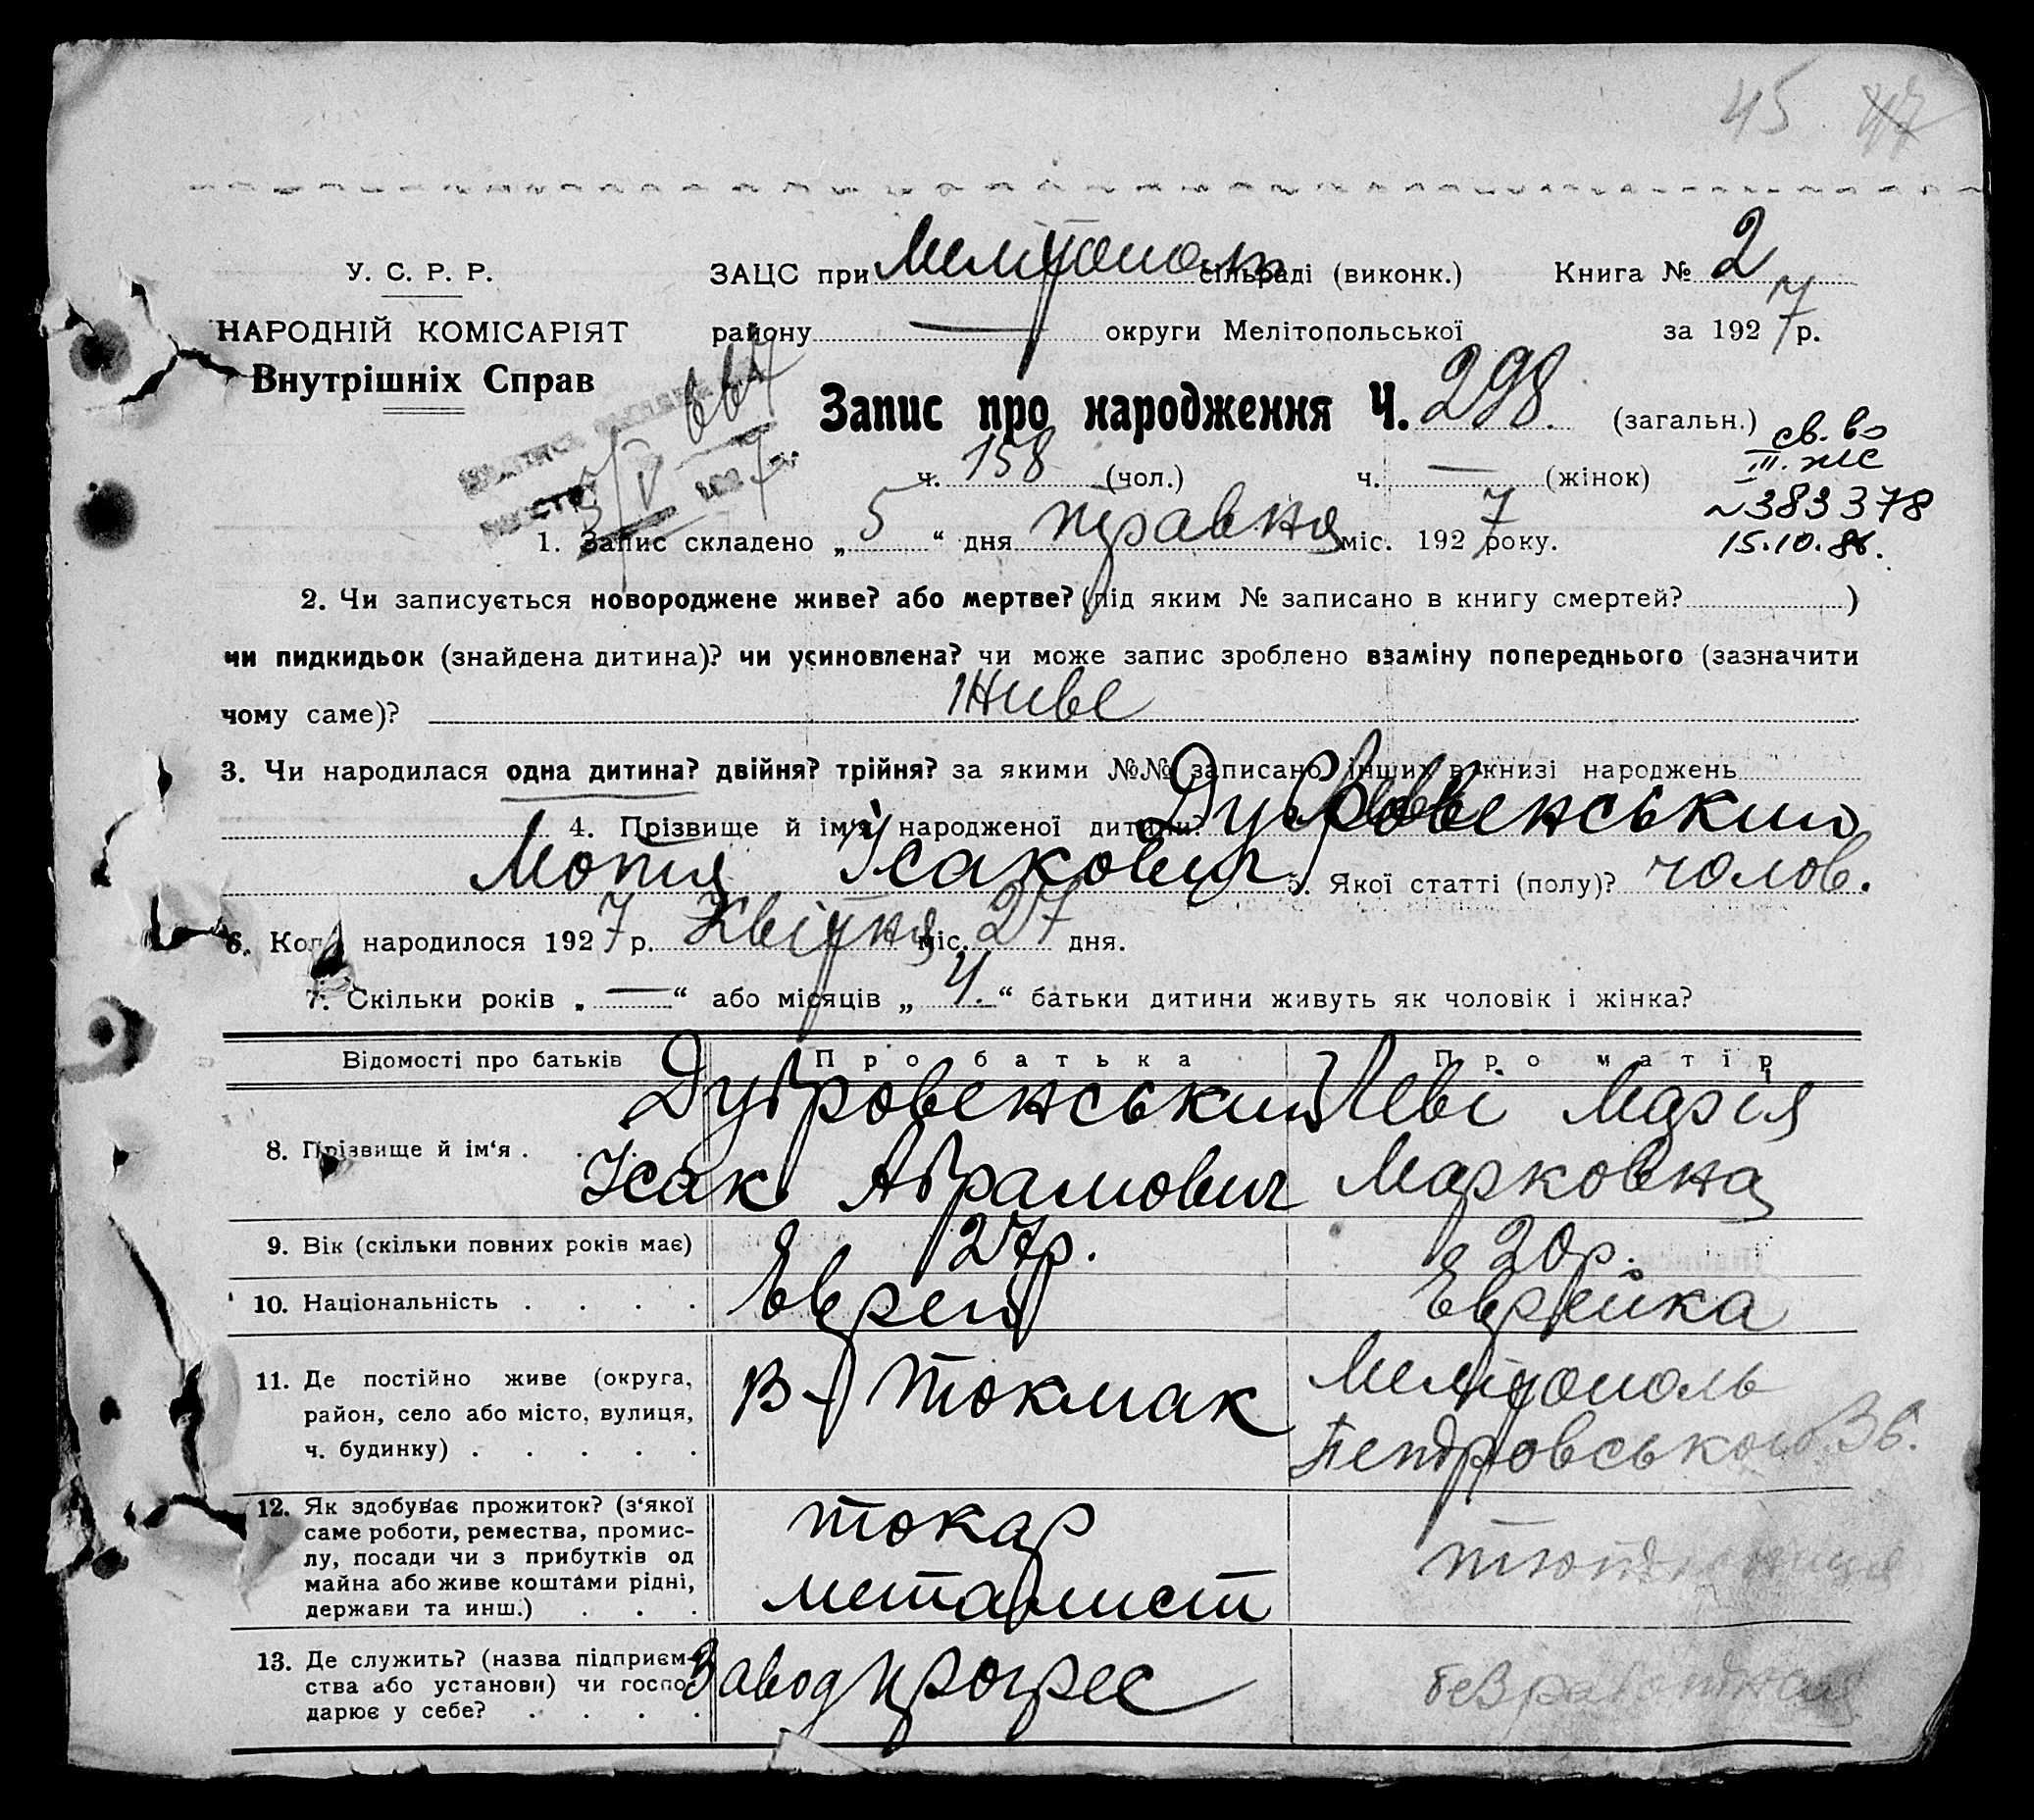 45 47
У. С. Р. Р.
ЗАЦС при Мелітополь сільраді (виконк.) Книга № 2
НАРОДНІЙ КОМІСАРІЯТ
району — округи Мелітопольської за 1927 р.
Внутрішніх Справ
664
Запис про народження Ч. 298. (загальн.)
св. во
ч. 158 (чол.) ч. — (жінок)
III. жс
5/V 1927 р.
№ 383378
1. Запис складено „ 5 “ дня травня міс. 1927 року.
15.10.86.
2. Чи записується новороджене живе? або мертве? (під яким № записано в книгу смертей? )
чи пидкидьок (знайдена дитина)? чи усиновлена? чи може запис зроблено взаміну попереднього (зазначити
чому саме)? Живе
3. Чи народилася одна дитина? двійня? трійня? за якими №№ записано інших в книзі народжень
4. Прізвище й ім'я народженої дитини? Дубровенський
Мотя Ісакович 5. Якої статті (полу)? чолов.
6. Коли народилося 1927 р. Квітня міс. 27 дня.
7. Скільки років „ — “ або місяців „ 4. “ батьки дитини живуть як чоловік і жінка?
Відомості про батьків Про батька Про матір
8. Прізвище й ім'я . Дубровенський Ісак Абрамович Леві Марія Марковна
9. Вік (скільки повних років має) 27р. 20р.
10. Національність . . . . Еврей Еврейка
11. Де постійно живе (округа, район, село або місто, вулиця, ч. будинку) . . . . . В-Токмак Мелітополь Петровського 36.
12. Як здобуває прожиток? (з'якої
саме роботи, ремества, промис-
лу, посади чи з прибутків од
майна або живе коштами рідні,
держави та инш.) . . . токар металист
13. Де служить? (назва підприєм-
ства або установи) чи госпо-
дарює у себе? . . . . Завод прогрес безработная